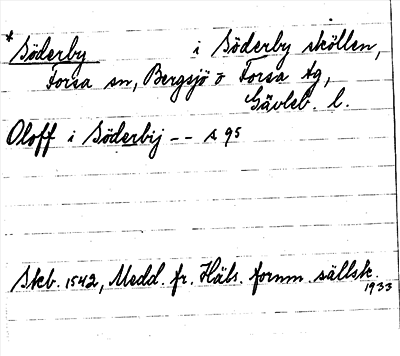 * Söderby i Söderby sköllen,
Forsa sn, Bergsjö o Forsa tg,
Gävleb. l.
Oloff i Söderbij -- s 95
Skb. 1542, Medd. fr. Häls. fornm. sällsk.
1933